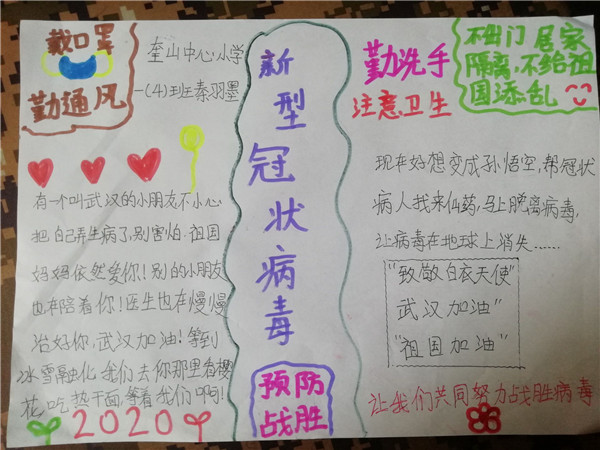 戴口罩
勤通风
奎山中心小学
一(4)班秦羽墨
有一个叫武汉的小朋友不小心
把自己弄生病了,别害怕.祖国
妈妈依然爱你!别的小朋友
也在陪着你!医生也在慢慢
治好你,武汉加油!等到
冰雪融化我们去你那里看樱
花,吃热干面,等着我们啊!
2020
新型冠状病毒
预防
战胜
勤洗手
注意卫生
不出门居家
隔离.不给祖
国添乱
现在好想变成孙悟空,帮冠状
病人找来仙药,马上脱离病毒,
让病毒在地球上消失……
"致敬白衣天使"
武汉加油"
"祖国加油"
让我们共同努力战胜病毒